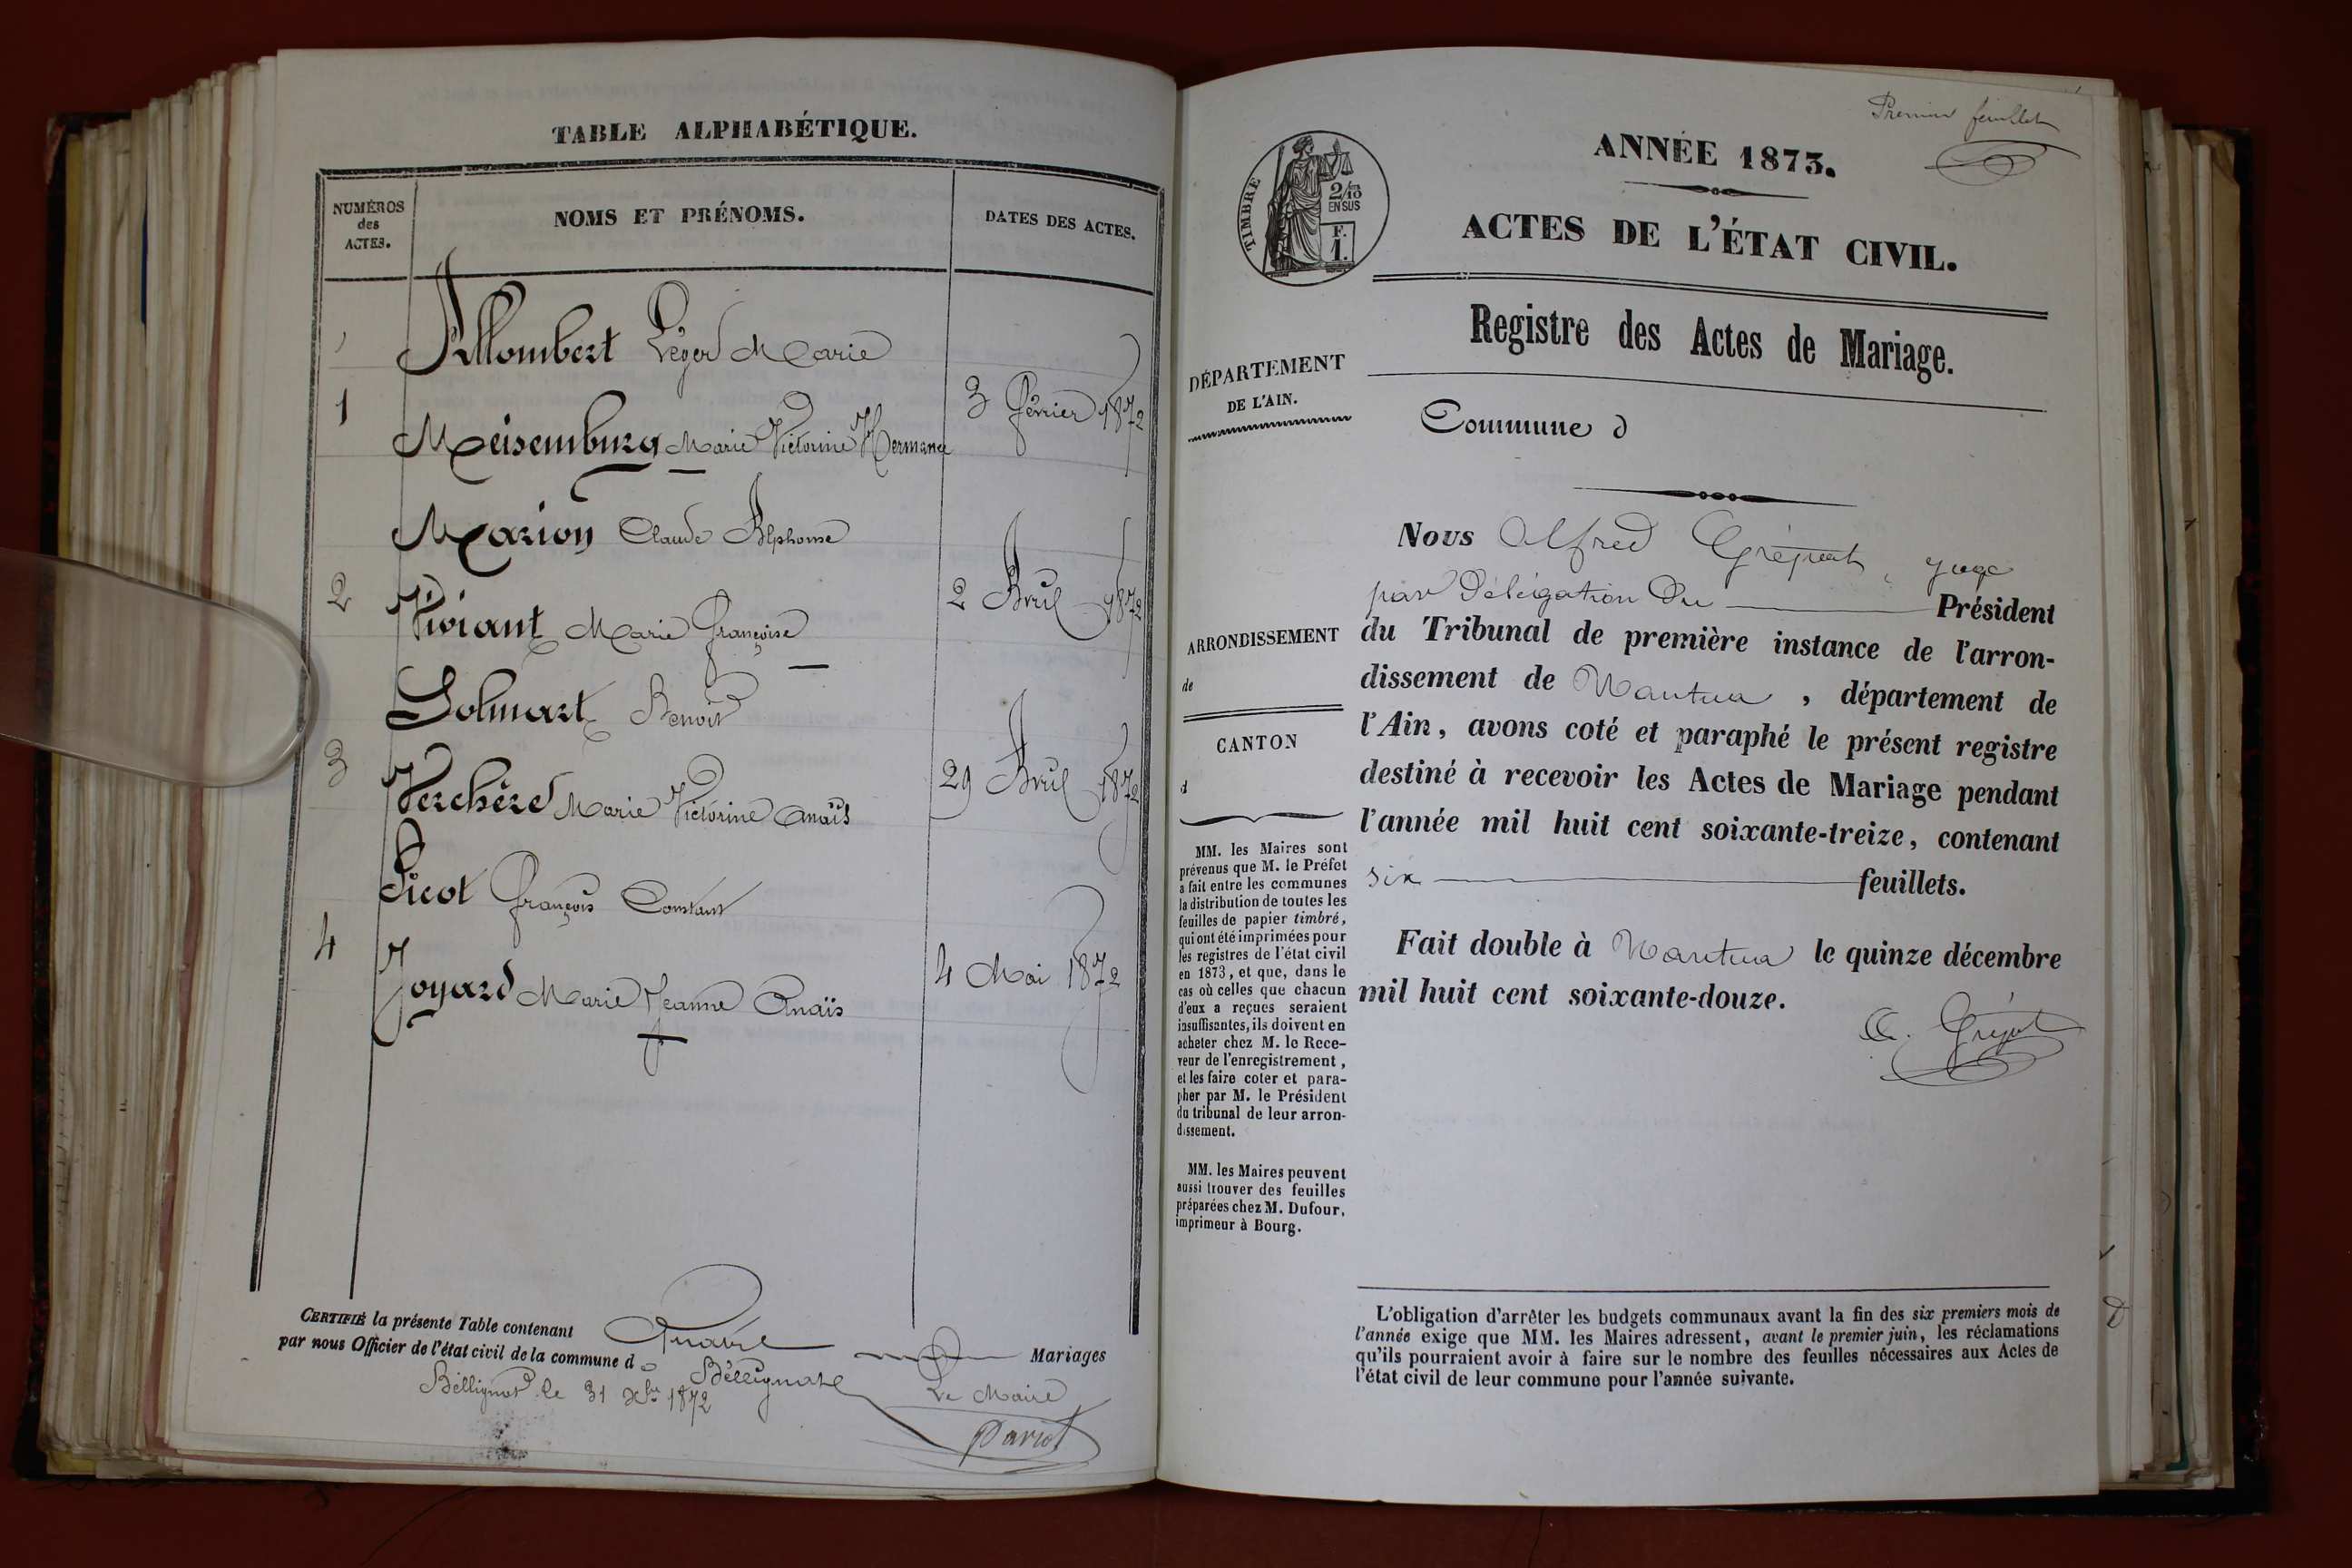 TABLE ALPHABÉTIQUE.
NUMÉROS
des
ACTES.
NOMS ET PRÉNOMS.
DATES DES ACTES.
Allombert Léger Marie
1
3 février 1872
Meisemburg Marie Victorine Hermance
Marion Claude Alphonse
2
2 Avril 1872
Viviant Marie Françoise
Solmart Benoit
3
29 Avril 1872
Verchère Marie Victorine Anaïs
Picot François Constant
4
4 Mai 1872
Joyard Marie Jeanne Anaïs
CERTIFIÉ la présente Table contenant Quatre Mariages
par nous Officier de l'état civil de la commune de Béllignat
Béllignat le 31 Xbre 1872
Le Maire
Pariot
Premier feuillet
ANNÉE 1873.
TIMBRE
2/10
EN SUS
F.
1.
ACTES DE L'ÉTAT CIVIL.
Registre des Actes de Mariage.
DÉPARTEMENT
DE L'AIN.
Commune d
ARRONDISSEMENT
de
CANTON
d
MM. les Maires sont
prévenus que M. le Préfet
a fait entre les communes
la distribution de toutes les
feuilles de papier timbré,
qui ont été imprimées pour
les registres de l'état civil
en 1873, et que, dans le
cas où celles que chacun
d'eux a reçues seraient
insuffisantes, ils doivent en
acheter chez M. le Rece-
veur de l'enregistrement,
et les faire coter et para-
pher par M. le Président
du tribunal de leur arron-
dissement.
MM. les Maires peuvent
aussi trouver des feuilles
préparées chez M. Dufour,
imprimeur à Bourg.
Nous Alfred Grépat, juge
par Délégation Du Président
du Tribunal de première instance de l'arron-
dissement de Nantua, département de
l'Ain, avons coté et paraphé le présent registre
destiné à recevoir les Actes de Mariage pendant
l'année mil huit cent soixante-treize, contenant
six feuillets.
Fait double à Nantua le quinze décembre
mil huit cent soixante-douze.
L'obligation d'arrêter les budgets communaux avant la fin des six premiers mois de
l'année exige que MM. les Maires adressent, avant le premier juin, les réclamations
qu'ils pourraient avoir à faire sur le nombre des feuilles nécessaires aux Actes de
l'état civil de leur commune pour l'année suivante.